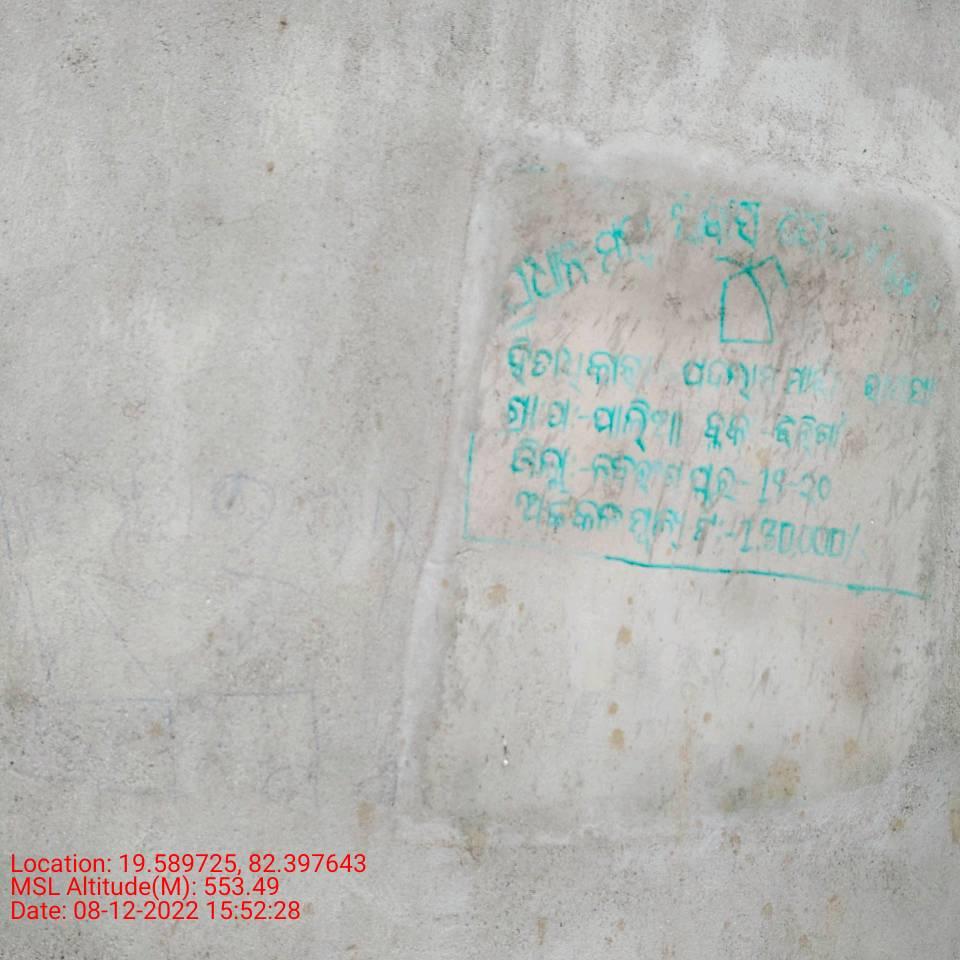 ପ୍ରଧାନ ମନ୍ତ୍ରୀ ଆବାସ
ହିତାଧିକାରୀ ପଦଲାମ ମାଝୀ
ଗ୍ରା ପ-ପାଲିଆ ବ୍ଲକ-ଝରିଗାଁ
ଜିଲ୍ଲା-ନବରଂଗପୁର-19-20
ଅଟକଳ ମୂଲ୍ୟ ଟ:-130,000/
Location: 19.589725, 82.397643
MSL Altitude(M): 553.49
Date: 08-12-2022 15:52:28